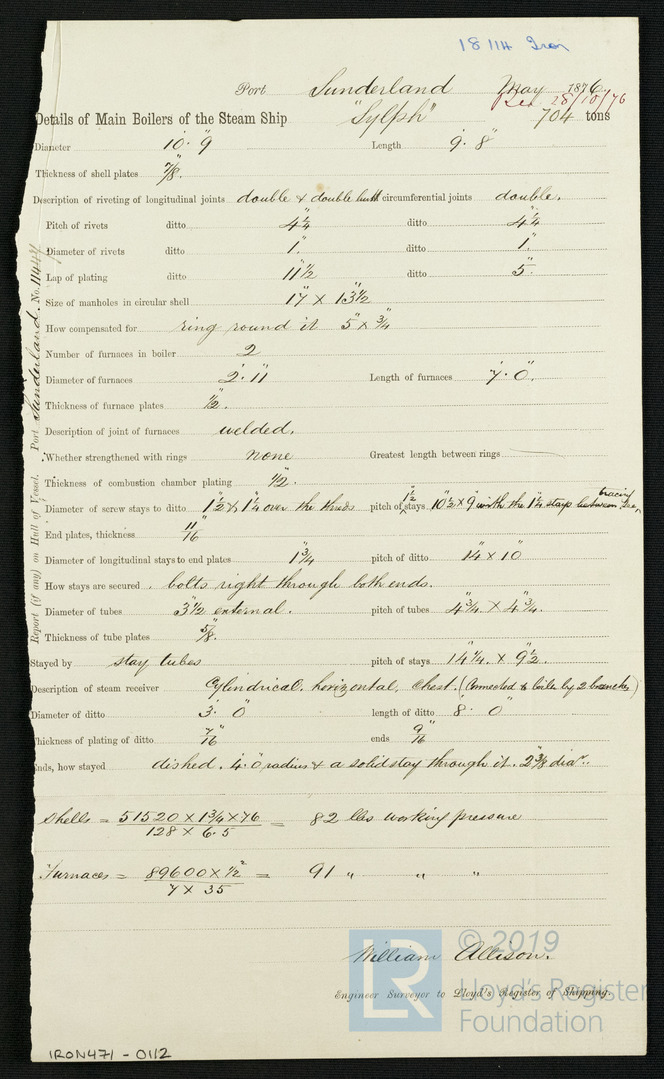 18 114 Iron
Port Sunderland May 1876
Rec 28/10/76
Details of Main Boilers of the Steam Ship "Sylph" 704 tons
Diameter 10'. 9" Length 9'. 8"
Thickness of shell plates 7/8".
Description of riveting of longitudinal joints double & double butt circumferential joints double.
Pitch of rivets ditto 4 1/4" ditto 4 1/4"
Diameter of rivets ditto 1". ditto 1"
Lap of plating ditto 11 1/2" ditto 5".
Size of manholes in circular shell 17" x 13 1/2"
How compensated for ring round it 5" x 3/4"
Number of furnaces in boiler 2
Diameter of furnaces 2'. 11" Length of furnaces 7'. 0".
Thickness of furnace plates 1/2".
Description of joint of furnaces welded.
Whether strengthened with rings none Greatest length between rings
Thickness of combustion chamber plating 1/2".
Diameter of screw stays to ditto 1 1/2" & 1 1/4" over the threads pitch of 1 1/2" stays 10 1/2" x 9" with the 1 1/4" stays between
End plates, thickness 11/16"
Diameter of longitudinal stays to end plates 1 3/4" pitch of ditto 14" x 10"
How stays are secured bolts right through both ends.
Diameter of tubes 3 1/2" external. pitch of tubes 4 3/4" x 4 3/4".
Thickness of tube plates 5/8".
Stayed by stay tubes pitch of stays 14 1/4" x 9 1/2".
Description of steam receiver Cylindrical, horizontal, Chest. (Connected to boiler by 2 branches)
Diameter of ditto 3'. 0" length of ditto 8'. 0"
Thickness of plating of ditto 7/16" ends 9/16"
Ends, how stayed dished. 4'. 0" radius & a solid stay through it. 2 3/8" diar.
Shells = 51520 x 1 3/4 x 76 / 128 x 6.5 = 82 lbs working pressure
Furnaces = 89600 x 1/2² / 7 x 35 = 91 " " "
William Allison.
Engineer Surveyor to Lloyd's Register of Shipping.
Report (if any) on Hull of Vessel. Port Sunderland. No. 11444
© 2019
LR Lloyd's Register
Foundation
IRON471-0112